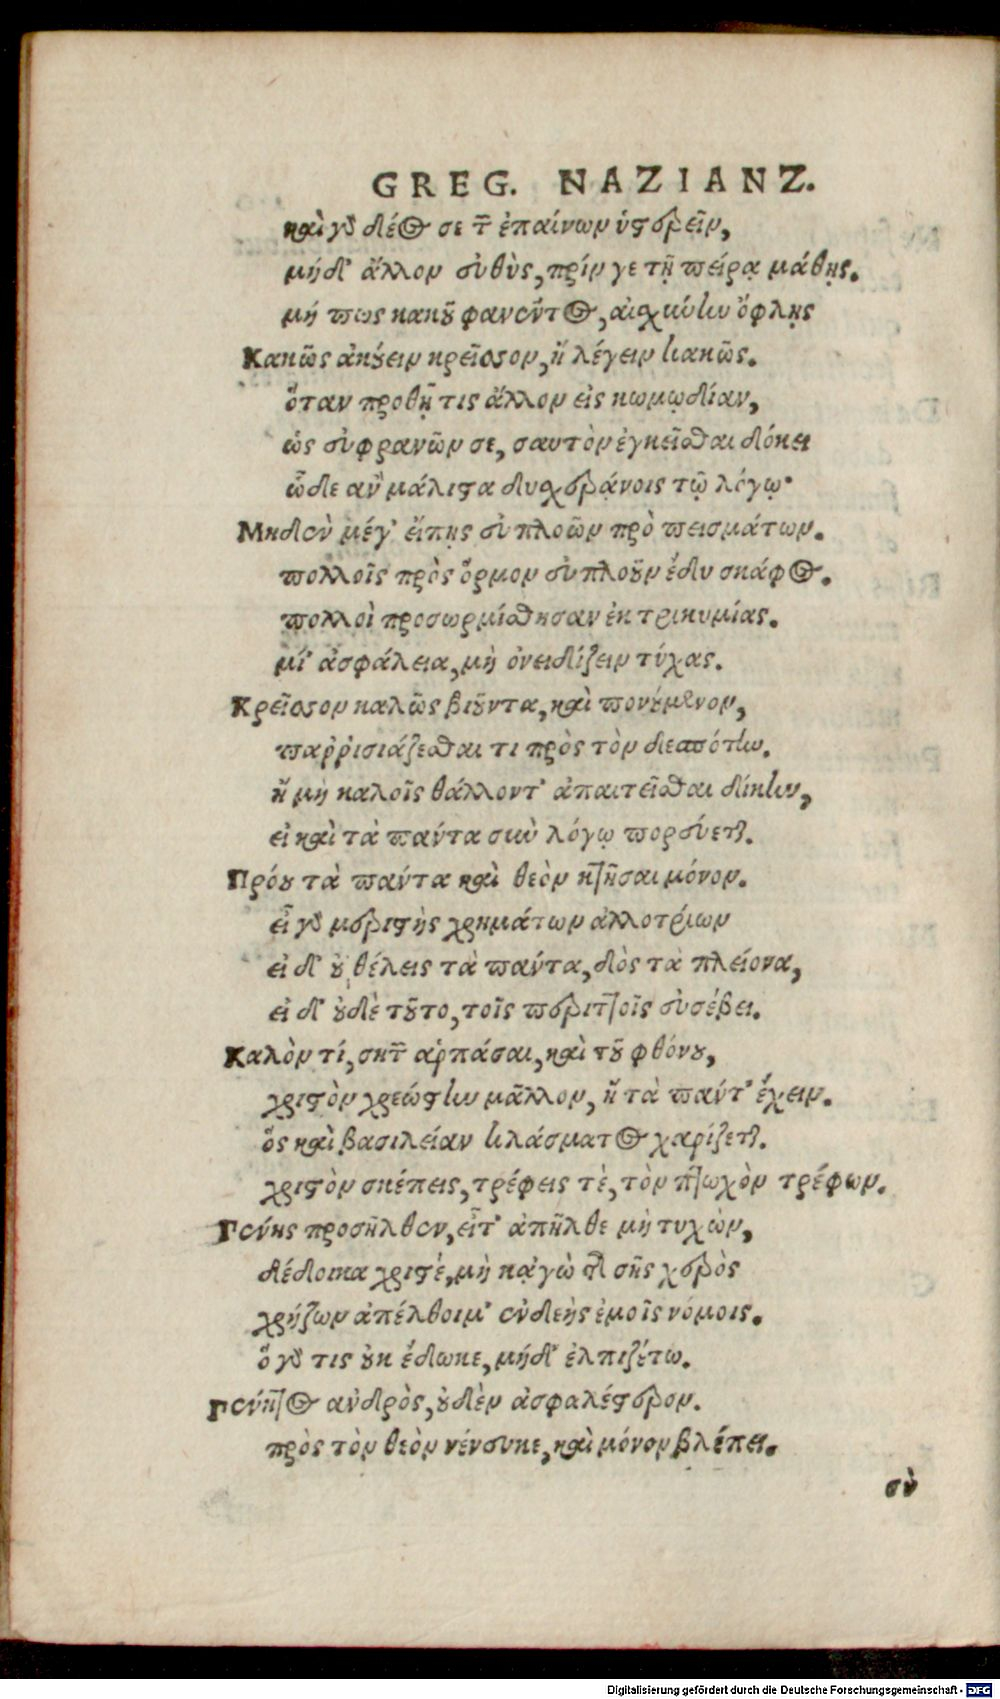 GREG. NAZIANZ.
καὶ γὰρ δέος σε τῶν ἐπαίνων ὑστερεῖν,
μήδ' ἄλλον εὐθὺς, πρίν γε τῇ πείρᾳ μάθῃς.
μή πως κακοῦ φανέντος, αἰσχύνην ὄφλῃς
Κακῶς ἀκούειν κρεῖσσον, ἢ λέγειν κακῶς.
ὅταν προθῇ τις ἄλλον εἰς κωμῳδίαν,
ὡς εὐφρανῶν σε, σαυτὸν ἐγκεῖσθαι δόκει
ὧδε ἂν μάλιστα δυσχεράνοις τῷ λόγῳ·
Μηδὲν μέγ' εἴπῃς εὐπλοῶν πρὸ πεισμάτων.
πολλοῖς πρὸς ὅρμον εὐπλοοῦν ἔδυ σκάφος.
πολλοὶ προσωρμίσθησαν ἐκ τρικυμίας.
μί' ἀσφάλεια, μὴ ὀνειδίζειν τύχας.
Κρεῖσσον καλῶς βιοῦντα, καὶ πονούμενον,
παῤῥισιάζεσθαι τι πρὸς τὸν δεσπότην.
ἢ μὴ καλοῖς θάλλοντ' ἀπαιτεῖσθαι δίκην,
εἰ καὶ τὰ πάντα σὺν λόγῳ πορσύεται.
Πρόου τὰ πάντα καὶ θεὸν κτῆσαι μόνον.
εἶ γὰρ μεριστὴς χρημάτων ἀλλοτρίων
εἰ δ' οὐ θέλεις τὰ πάντα, δὸς τὰ πλείονα,
εἰ δ' οὐδὲ τοῦτο, τοῖς περιττοῖς εὐσέβει.
Καλὸν τί, σητῶν ἁρπάσαι, καὶ τοῦ φθόνου,
χριστὸν χρεώστην μᾶλλον, ἢ τὰ πάντ' ἔχειν.
ὅς καὶ βασιλείαν κλάσματος χαρίζεται.
χριστὸν σκέπεις, τρέφεις τὲ, τὸν πτωχὸν τρέφων.
Πένης προσῆλθεν, εἶτ' ἀπῆλθε μὴ τυχὼν,
δέδοικα χριστὲ, μὴ κᾀγὼ τῆς σῆς χερὸς
χρῄζων ἀπέλθοιμ' ἐνδεὴς ἐμοῖς νόμοις.
ὃ γάρ τις οὐκ ἔδωκε, μήδ' ἐλπιζέτω.
Πένητος ἀνδρὸς, οὐδὲν ἀσφαλέστερον.
πρὸς τὸν θεὸν νένευκε, καὶ μόνον βλέπει.
σὺ
Digitalisierung gefördert durch die Deutsche Forschungsgemeinschaft - DFG